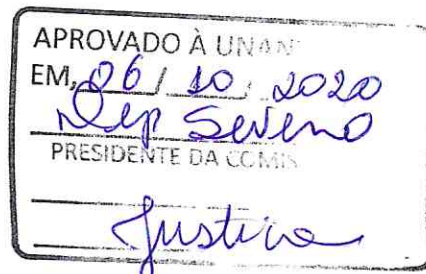 APROVADO À UNAN
EM, 06 / 10, 2020
Dep Severo
PRESIDENTE DA COMIS
Justiça